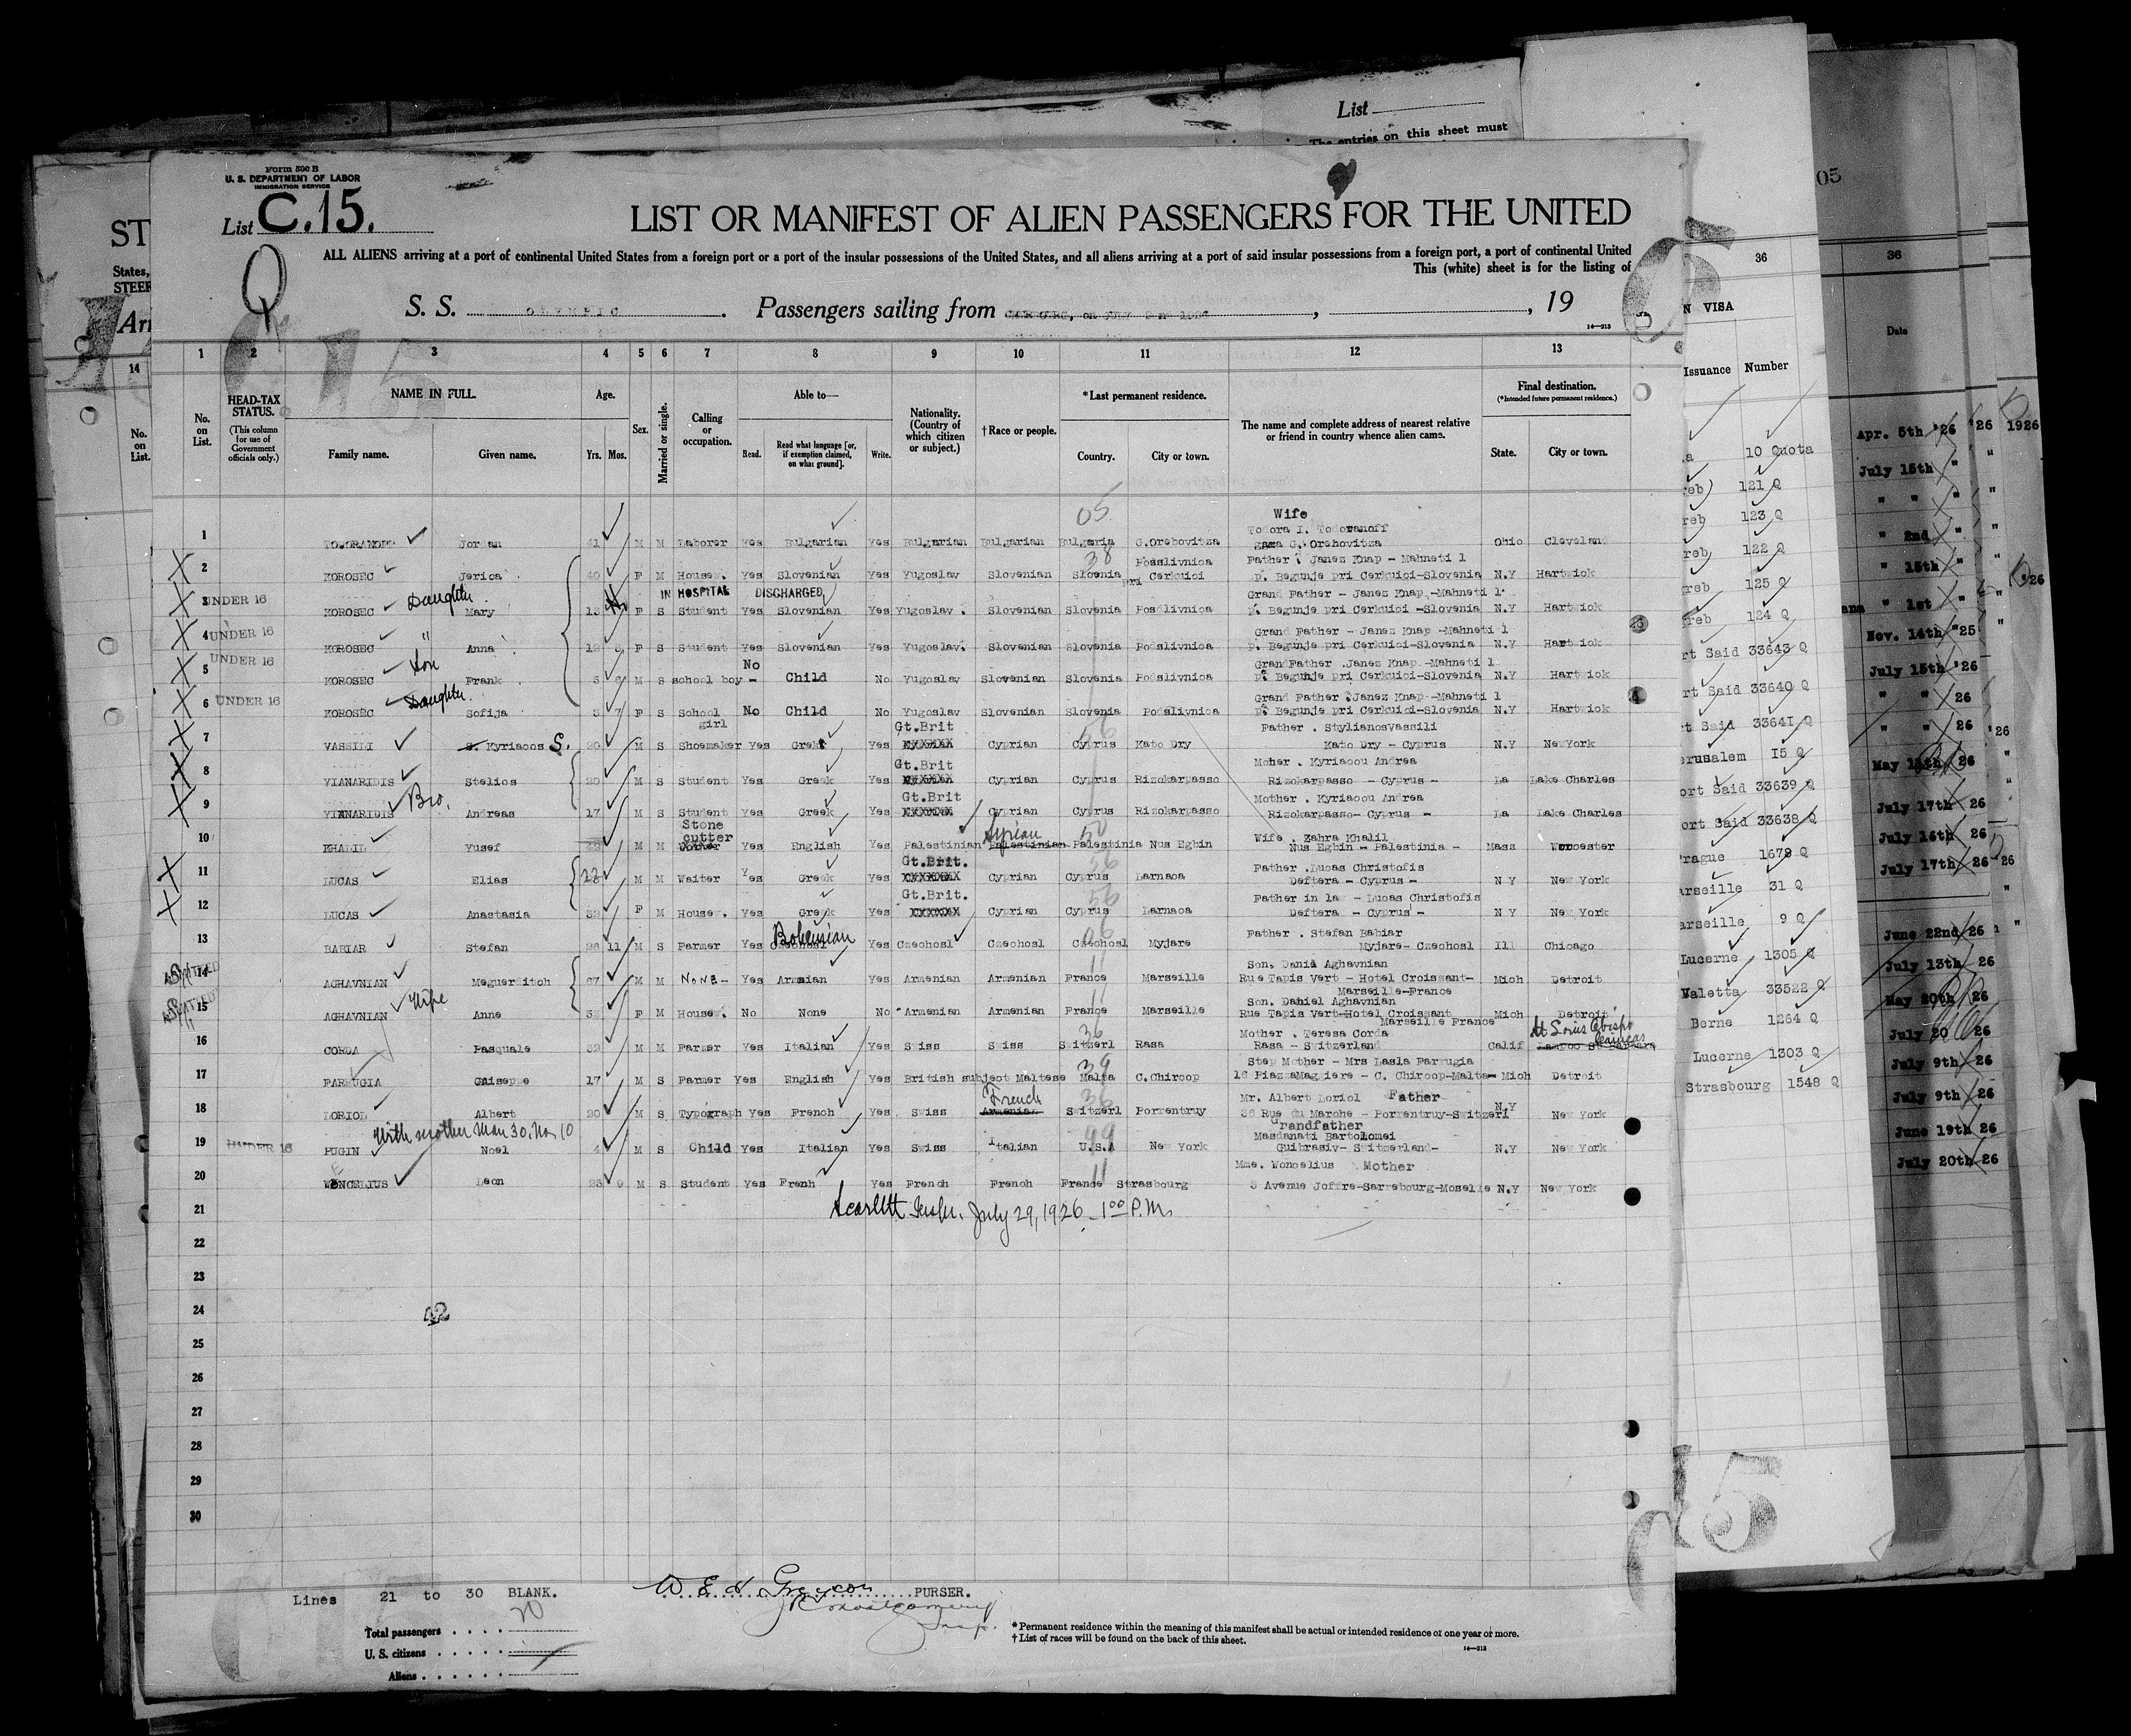 List
The entries on this sheet must
Form 500 B
U. S. DEPARTMENT OF LABOR
IMMIGRATION SERVICE
List C.15.
LIST OR MANIFEST OF ALIEN PASSENGERS FOR THE UNITED
ALL ALIENS arriving at a port of continental United States from a foreign port or a port of the insular possessions of the United States, and all aliens arriving at a port of said insular possessions from a foreign port, a port of continental United
This (white) sheet is for the listing of
Q
S. S. OLYMPIC. Passengers sailing from , 19
1 2 3 4 5 6 7 8 9 10 11 12 13
No. on List.
HEAD-TAX STATUS.
(This column for use of Government officials only.)
NAME IN FULL.
Family name. Given name.
Age.
Yrs. Mos.
Sex.
Married or single.
Calling or occupation.
Able to—
Read. Read what language [or, if exemption claimed, on what ground]. Write.
Nationality. (Country of which citizen or subject.)
† Race or people.
*Last permanent residence.
Country. City or town.
The name and complete address of nearest relative or friend in country whence alien came.
Final destination.
(*Intended future permanent residence.)
State. City or town.
05
Wife
Todora I. Todoranoff
1 TODORANOFF Jordan 41 M M Laborer Yes Bulgarian Yes Bulgarian Bulgarian Bulgaria G.Orehovitza G. Orehovitza Ohio Cleveland
38 Podslivnica Father : Janez Knap - Mahneti 1
2 KOROSEC Jerica 40 F M Housew. Yes Slovenian Yes Yugoslav Slovenian Slovenia pri Cerkuici p. Begunje pri Cerkuici-Slovenia N.Y Hartwick
UNDER 16 Daughter IN HOSPITAL DISCHARGED Grand Father - Janez Knap -Mahneti 1
3 KOROSEC Mary 13 F S Student Yes Slovenian Yes Yugoslav. Slovenian Slovenia Podslivnica p. Begunje pri Cerkuici -Slovenia N.Y Hartwick
UNDER 16 " Grand Father - Janez Knap -Mahneti 1
4 KOROSEC Anna 12 F S Student Yes Slovenian Yes Yugoslav. Slovenian Slovenia Podslivnica p. Begunje pri Cerkuici-Slovenia N.Y Hartwick
UNDER 16 Son No GrandFather .Janez Knap -Mahneti 1
5 KOROSEC Frank 5 M S school boy - Child No Yugoslav Slovenian Slovenia Podslivnica p. Begunje pri Cerkuici-Slovenia N.Y Hartwick
UNDER 16 Daughter Grand Father .Janez Knap-Mahneti 1
6 KOROSEC Sofija 3 7 F S School girl No Child No Yugoslav Slovenian Slovenia Podslivnica p. Begunje pri Cerkuici-Slovenia N.Y Hartwick
Gt.Brit 56 Father . StylianosVassili
7 VASSILI S. Kyriacos S. 20 M S Shoemaker Yes Greek Yes Cyprian Cyprus Kato Dry Kato Dry - Cyprus N.Y NewYork
Gt.Brit Moher . Kyriacou Andrea
8 VIANARIDIS Stelios 20 M S Student Yes Greek Yes Cyprian Cyprus Rizokarpasso Rizokarpasso - Cyprus - La Lake Charles
Bro. Gt.Brit Mother . Kyriacou Andrea
9 VIANARIDIS Andreas 17 M S Student Yes Greek Yes Cyprian Cyprus Rizokarpasso Rizokarpasso- Cyprus - La Lake Charles
Stone cutter Syrian 50 Wife . Zahra Khalil
10 KHALIL Yusef M M Yes English Yes Palestinian Palestinian Palestinia Nus Egbin Nus Egbin - Palestinia - Mass Worcester
Gt.Brit. 56 Father .Lucas Christofis
11 LUCAS Elias M M Waiter Yes Greek Yes Cyprian Cyprus Larnaca Deftera - Cyprus - N Y New York
Gt.Brit. 56 Father in la - Lucas Christofis
12 LUCAS Anastasia 32 F M Housew. Yes Greek Yes Cyprian Cyprus Larnaca Deftera - Cyprus - N Y New York
Bohemian 06 Father . Stefan Babiar
13 BABIAR Stefan 28 11 M S Farmer Yes Czechosl Yes Czechosl Czechosl Czechosl Myjare Myjare- Czechosl Ill Chicago
ADMITTED 11 Son. Danid Aghavnian
14 AGHAVNIAN Meguerditch 67 M M None- Yes Armnian Yes Armenian Armenian France Marseille Rue Tapis Vert - Hotel Croissant- Marseille-France Mich Detroit
ADMITTED Wife 11 Son. Daniel Aghavnian
15 AGHAVNIAN Anne F M Housew. No None No Armenian Armenian France Marseille Rue Tapis Vert-Hotel Croissant Marseille France Mich Detroit
36 Mother . Teresa Corda
16 CORDA Pasquale 32 M M Farmer Yes Italian Yes Swiss Swiss Switzerl Rasa Rasa - Switzerland Calif
39 Step Mother - Mrs Lasla Parrugia
17 PARRUGIA Guiseppe 17 M S Farmer Yes English Yes British subject Maltese Malta C.Chircop 16 PiazzaMaggiere - C. Chircop-Malta- Mich Detroit
French 36 Mr. Albert Loriol Father
18 LORIOL Albert 20 M S Typograph Yes French Yes Swiss Armenian Switzerl Porrentruy 36 Rue du Marche - Porrentruy-Switzerl N.Y New York
With mother Man 30, No. 10 99 Grandfather
UNDER 16 Masdanati Bartolomei
19 PUGIN Noel 4 M S Child Yes Italian Yes Swiss Italian U.S.A New York Guibrasiv- Switzerland- N.Y New York
11 Mme. Woncelius Mother
20 WENCELIUS Leon 25 9 M S Student Yes Frenh Yes French French France Strasbourg 3 Avenue Joffre-Sarrebourg-Moselle N.Y New York
21 July 29, 1926 - 1 00 P.M.
22
23
24
25
26
27
28
29
30
Lines 21 to 30 BLANK.
PURSER.
Total passengers 20
U. S. citizens
Aliens
* Permanent residence within the meaning of this manifest shall be actual or intended residence of one year or more.
† List of races will be found on the back of this sheet.
14—213
36
N VISA
Issuance Number
10 Quota
121 Q
123 Q
122 Q
125 Q
124 Q
rt Said 33643 Q
rt Said 33640 Q
rt Said 33641 Q
erusalem 15 Q
ort Said 33639 Q
ort Said 33638 Q
rague 1678 Q
arseille 31 Q
arseille 9 Q
Lucerne 1305 Q
Valetta 33522 Q
Berne 1264 Q
Lucerne 1303 Q
Strasbourg 1548 Q
05
36
Date
Apr. 5th '26
July 15th "
" " "
" 2nd "
" 15th "
" 1st "
Nov. 14th '25
July 15th '26
" " 26
" " 26
May 26
July 17th 26
July 16th 26
July 17th 26
June 22nd 26
July 13th 26
May 20th 26
July 20 26
July 9th 26
July 9th 26
June 19th 26
July 20th 26